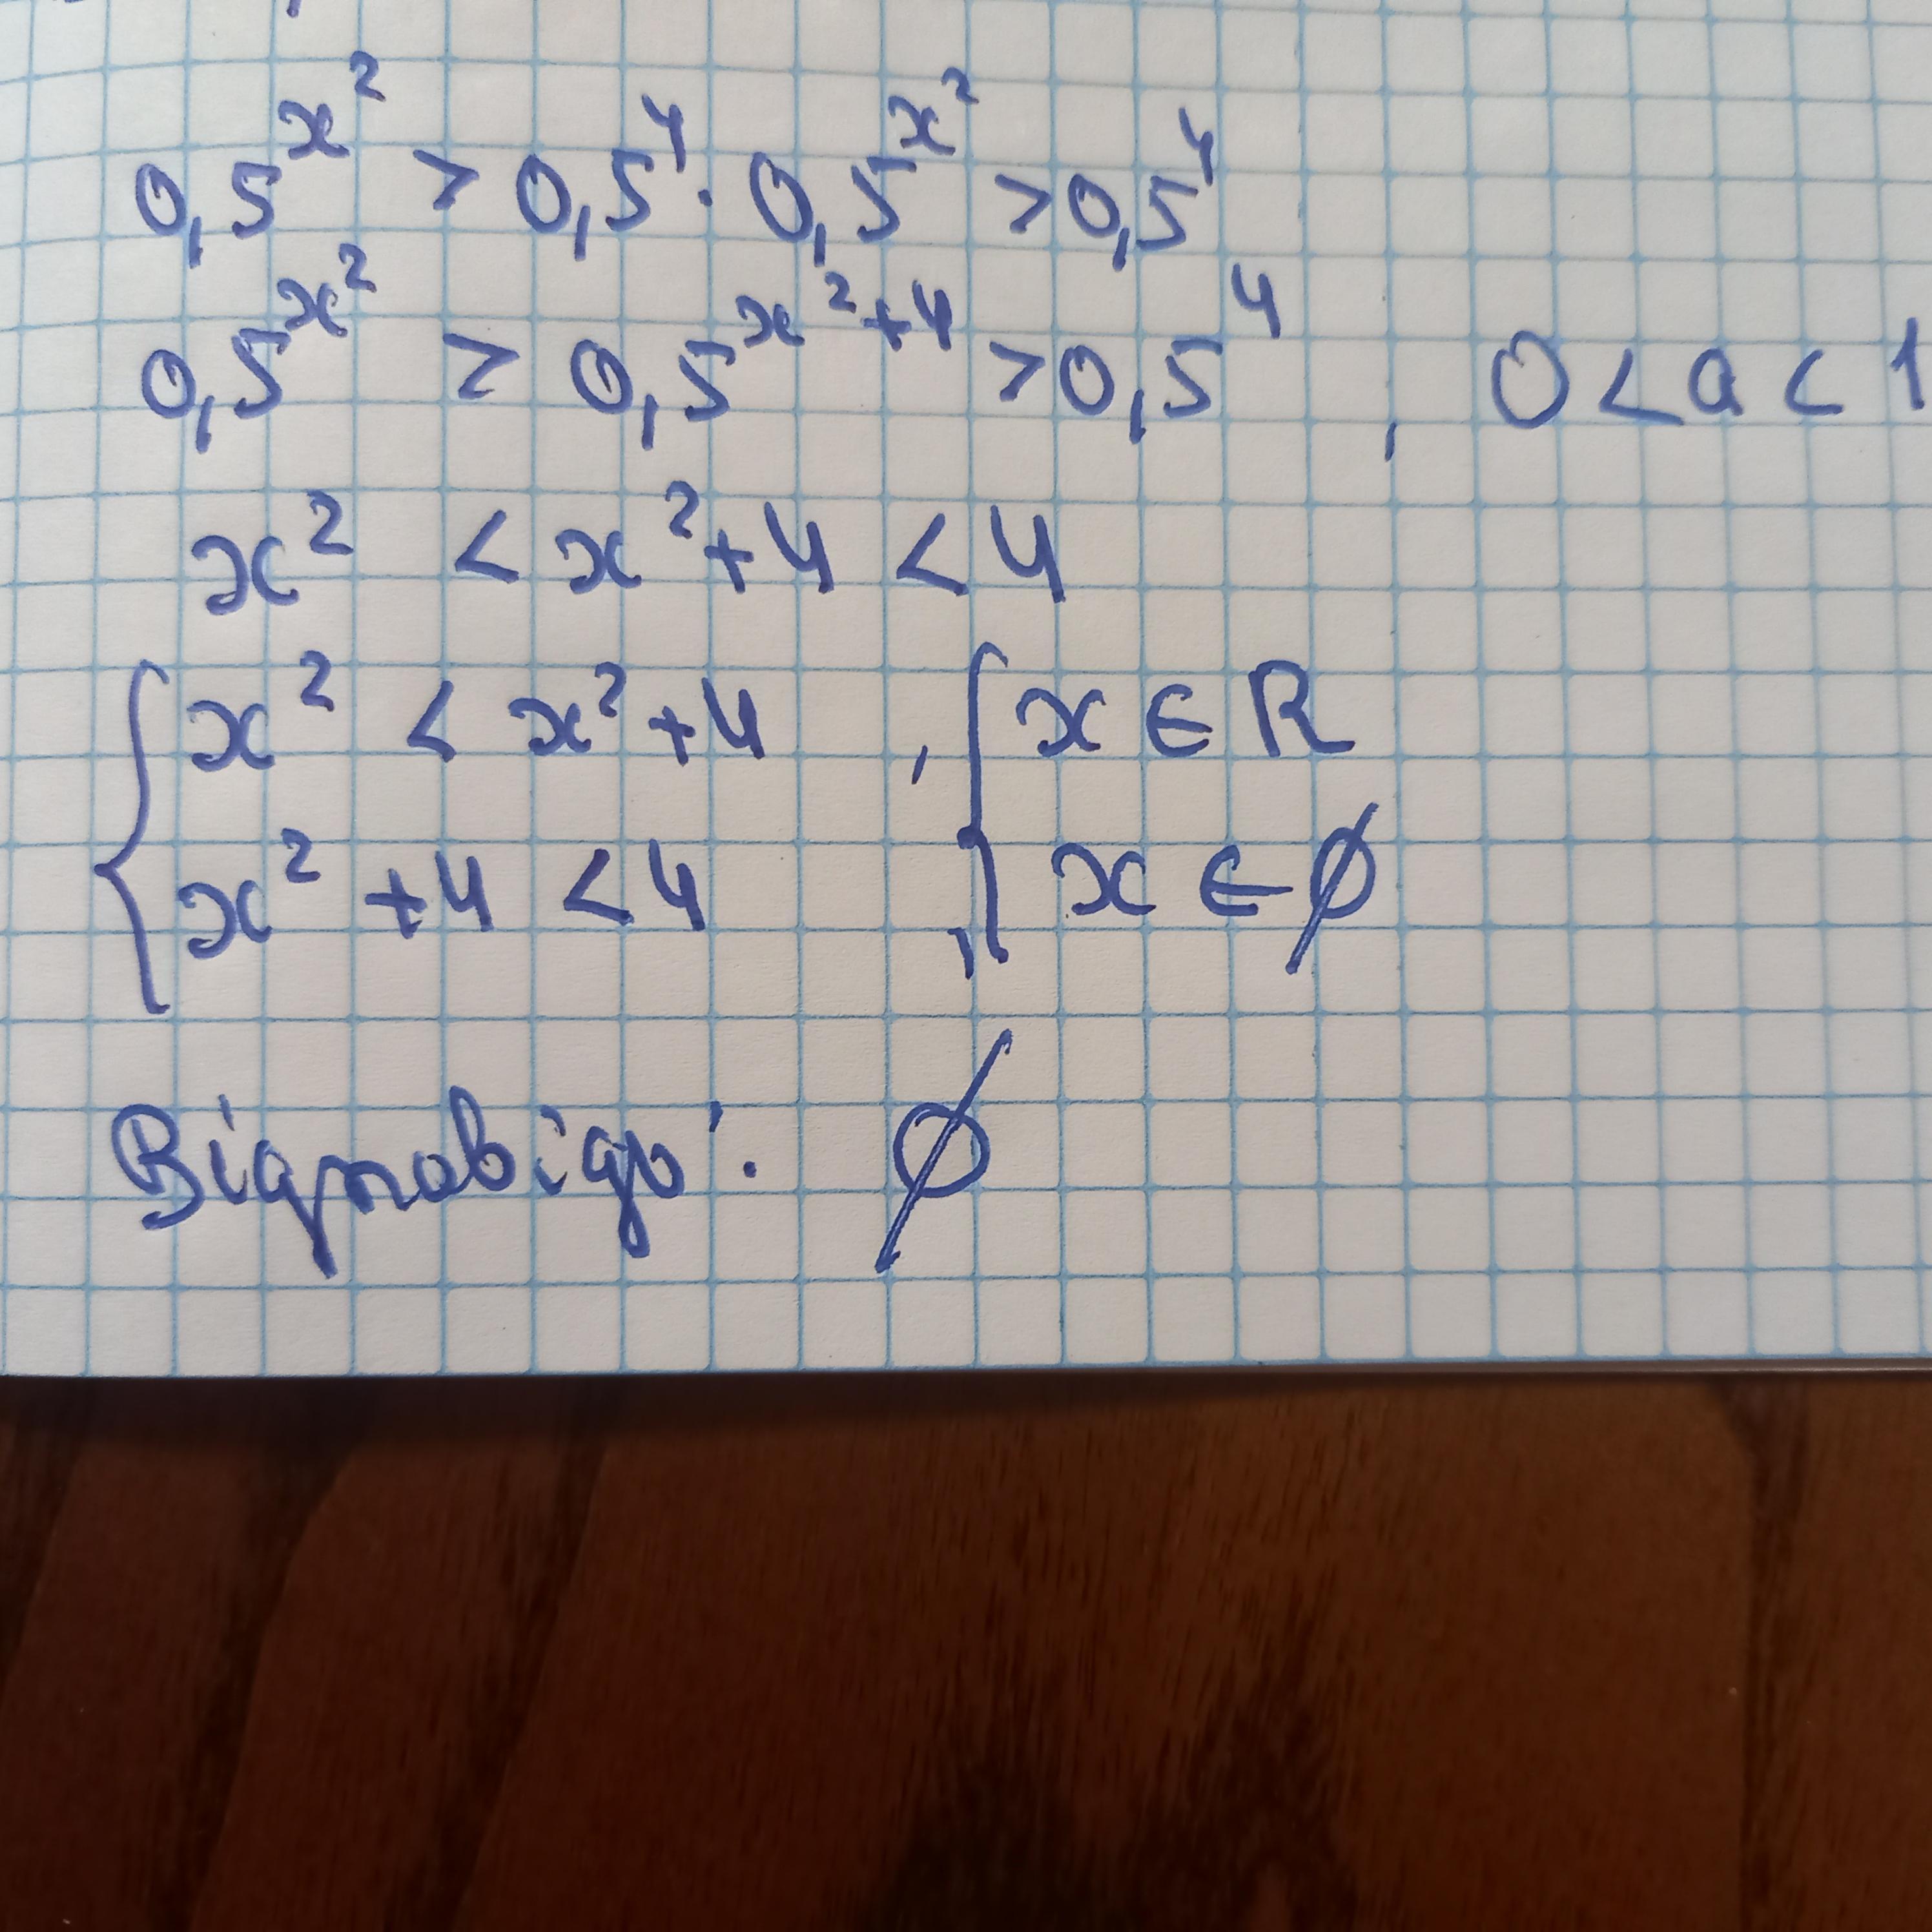 0,5^{x^2} > 0,5^4 · 0,5^{x^2} > 0,5^4
0,5^{x^2} > 0,5^{x^2+4} > 0,5^4 , 0 < a < 1
x^2 < x^2+4 < 4
{ x^2 < x^2+4 , { x ∈ R
x^2+4 < 4 , x ∈ ∅
Відповідь: ∅